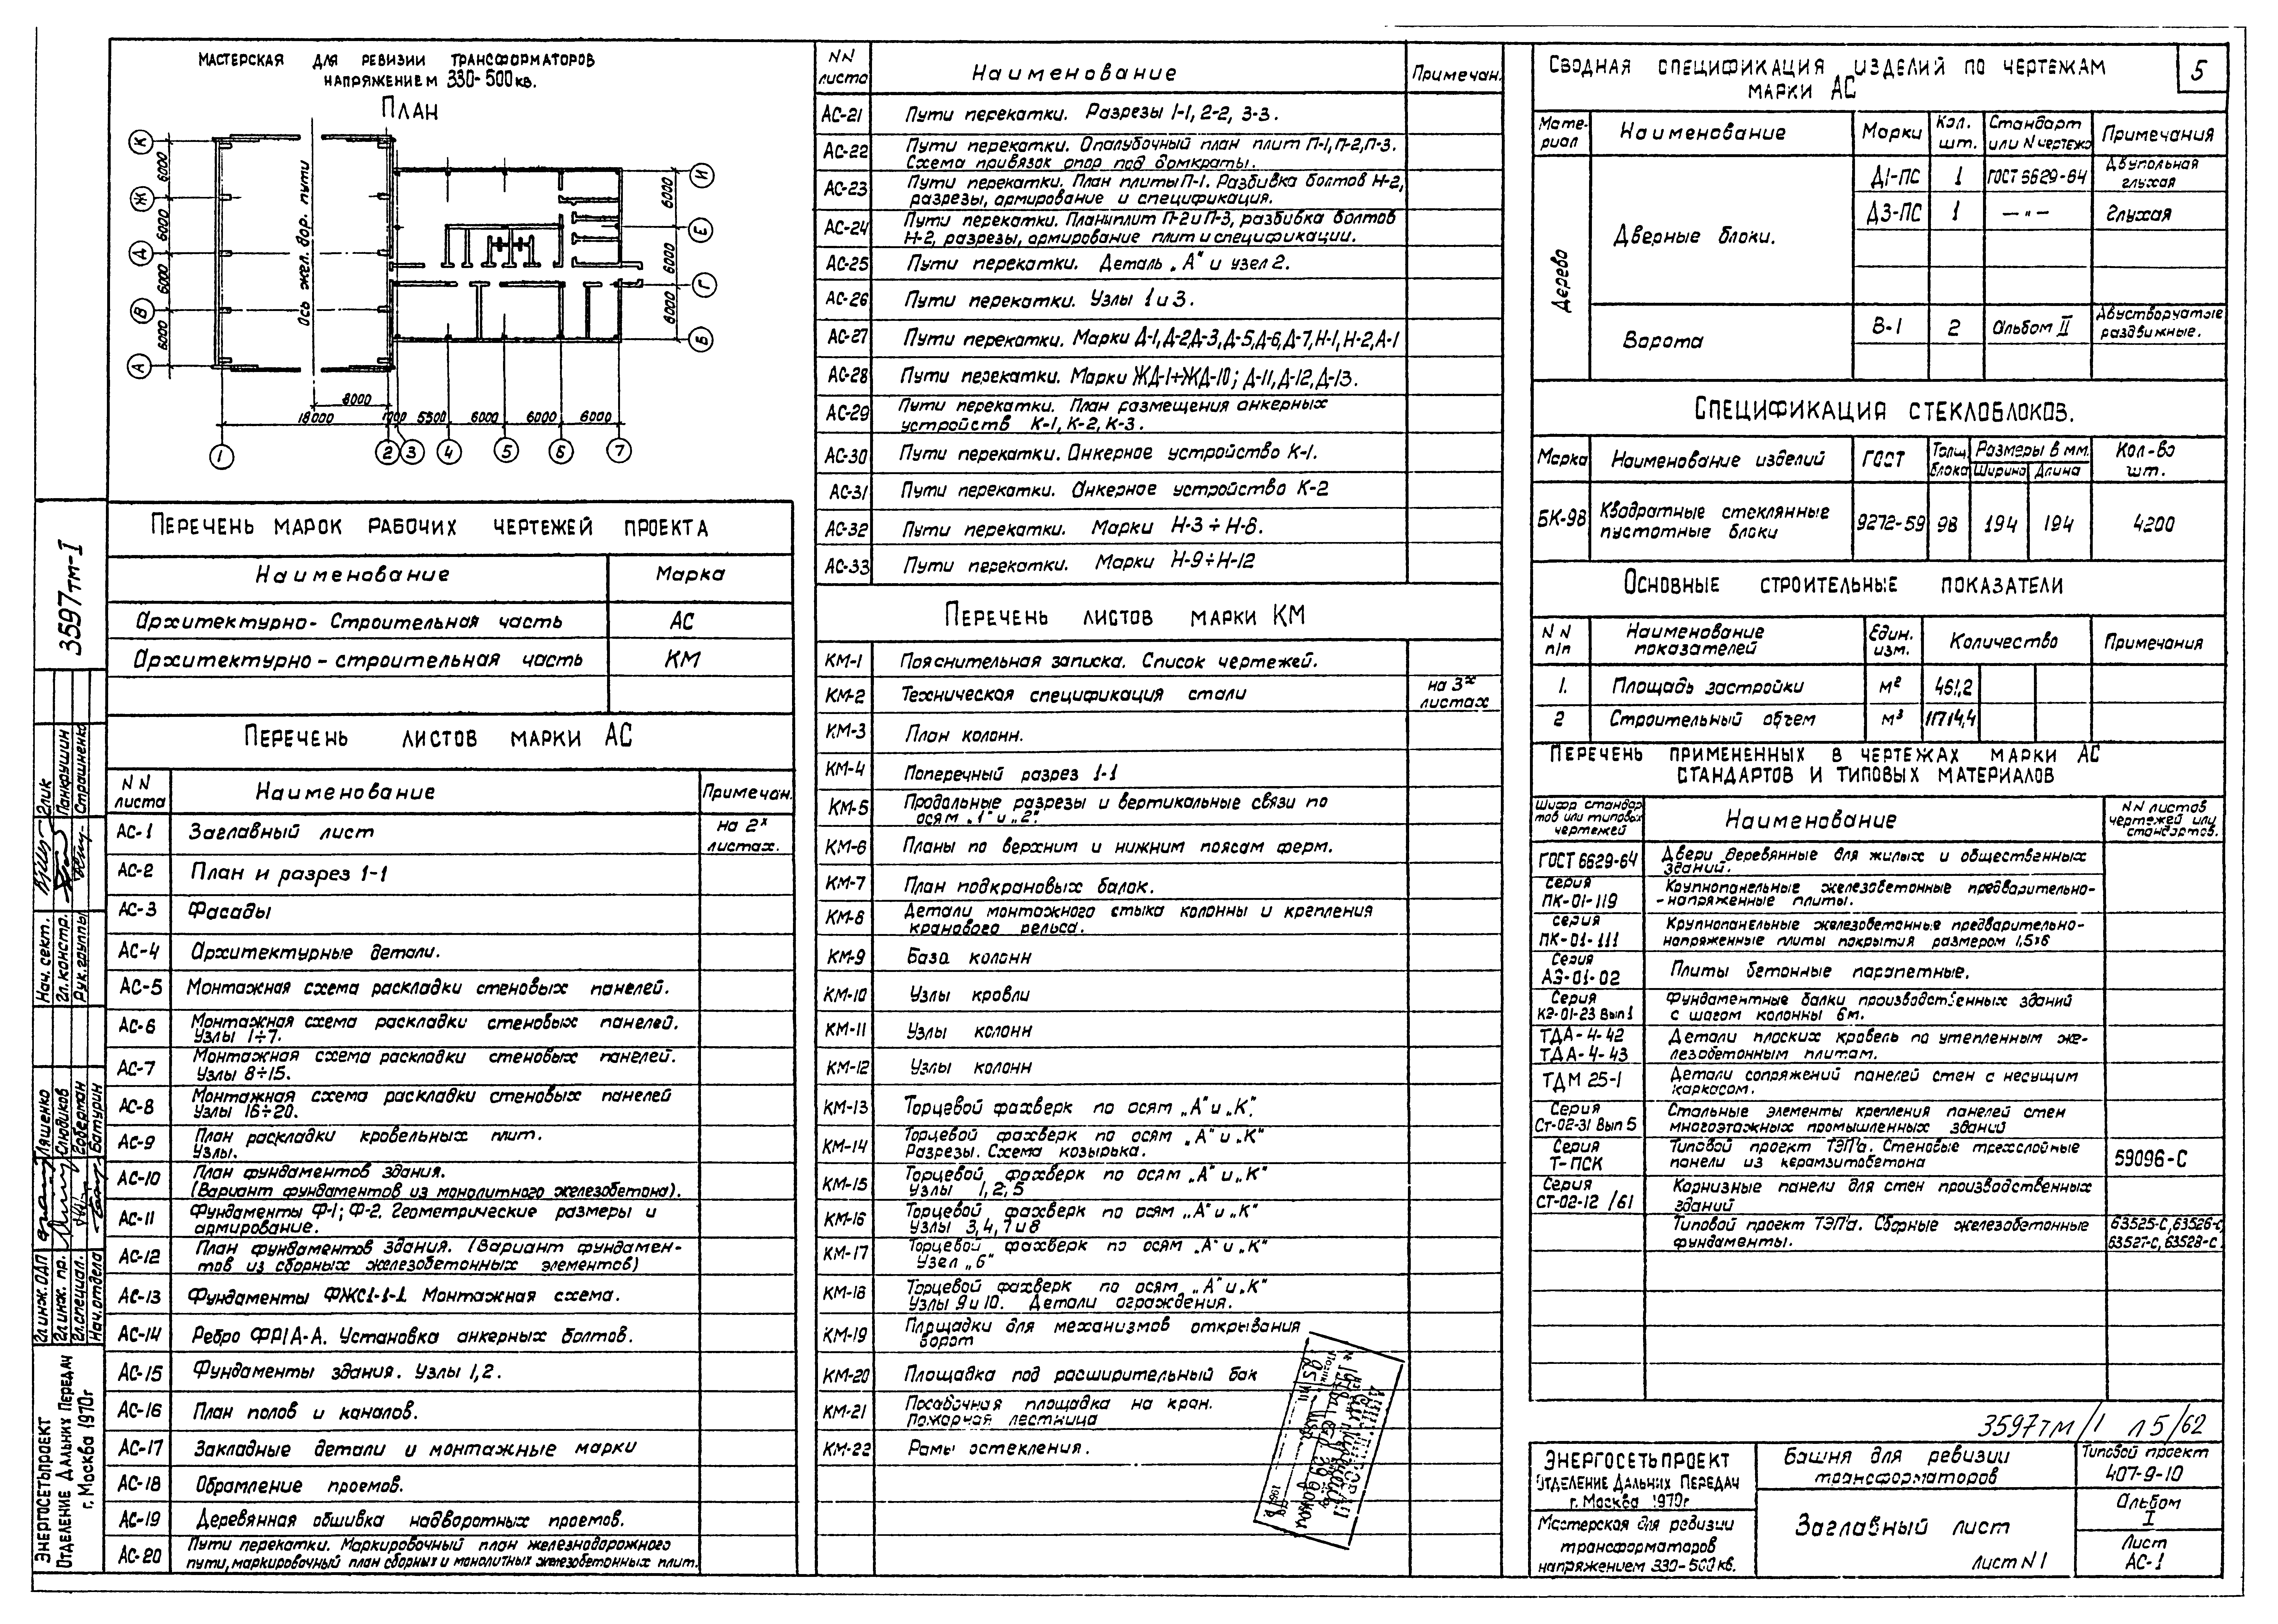 МАСТЕРСКАЯ ДЛЯ РЕВИЗИИ ТРАНСФОРМАТОРОВ
НАПРЯЖЕНИЕМ 330-500 КВ.
ПЛАН
К
Ж
Д
В
А
6000
6000
6000
6000
Ось жел. дор. пути
И
Е
Г
Б
6000
6000
6000
8000
18000
1000
5500
6000
6000
6000
1
2
3
4
5
6
7
ПЕРЕЧЕНЬ МАРОК РАБОЧИХ ЧЕРТЕЖЕЙ ПРОЕКТА
Наименование Марка
Архитектурно-Строительная часть АС
Архитектурно-строительная часть КМ
ПЕРЕЧЕНЬ ЛИСТОВ МАРКИ АС
NN листа Наименование Примечан.
АС-1 Заглавный лист на 2х листах.
АС-2 План и разрез 1-1
АС-3 Фасады
АС-4 Архитектурные детали.
АС-5 Монтажная схема раскладки стеновых панелей.
АС-6 Монтажная схема раскладки стеновых панелей.
Узлы 1÷7.
АС-7 Монтажная схема раскладки стеновых панелей.
Узлы 8÷15.
АС-8 Монтажная схема раскладки стеновых панелей
Узлы 16÷20.
АС-9 План раскладки кровельных плит.
Узлы.
АС-10 План фундаментов здания.
(Вариант фундаментов из монолитного железобетона).
АС-11 Фундаменты Ф-1; Ф-2. Геометрические размеры и
армирование.
АС-12 План фундаментов здания. (Вариант фундамен-
тов из сборных железобетонных элементов)
АС-13 Фундаменты ФЖС1-1-1. Монтажная схема.
АС-14 Ребро ФР1А-А. Установка анкерных болтов.
АС-15 Фундаменты здания. Узлы 1,2.
АС-16 План полов и каналов.
АС-17 Закладные детали и монтажные марки
АС-18 Обрамление проемов.
АС-19 Деревянная обшивка надворотных проемов.
АС-20 Пути перекатки. Маркировочный план железнодорожного
пути, маркировочный план сборных и монолитных железобетонных плит.
NN листа Наименование Примечан.
АС-21 Пути перекатки. Разрезы 1-1, 2-2, 3-3.
АС-22 Пути перекатки. Опалубочный план плит П-1, П-2, П-3.
Схема привязок опор под домкраты.
АС-23 Пути перекатки. План плиты П-1. Разбивка болтов Н-2,
разрезы, армирование и спецификация.
АС-24 Пути перекатки. План плит П-2 и П-3, разбивка болтов
Н-2, разрезы, армирование плит и спецификации.
АС-25 Пути перекатки. Деталь „А" и узел 2.
АС-26 Пути перекатки. Узлы 1 и 3.
АС-27 Пути перекатки. Марки Д-1, Д-2, Д-3, Д-5, Д-6, Д-7, Н-1, Н-2, А-1
АС-28 Пути перекатки. Марки ЖД-1÷ЖД-10; Д-11, Д-12, Д-13.
АС-29 Пути перекатки. План размещения анкерных
устройств К-1, К-2, К-3.
АС-30 Пути перекатки. Анкерное устройство К-1.
АС-31 Пути перекатки. Анкерное устройство К-2
АС-32 Пути перекатки. Марки Н-3÷Н-8.
АС-33 Пути перекатки. Марки Н-9÷Н-12
ПЕРЕЧЕНЬ ЛИСТОВ МАРКИ КМ
КМ-1 Пояснительная записка. Список чертежей.
КМ-2 Техническая спецификация стали на 3х листах
КМ-3 План колонн.
КМ-4 Поперечный разрез 1-1
КМ-5 Продольные разрезы и вертикальные связи по
осям „1" и „2".
КМ-6 Планы по верхним и нижним поясам ферм.
КМ-7 План подкрановых балок.
КМ-8 Детали монтажного стыка колонны и крепления
кранового рельса.
КМ-9 База колонн
КМ-10 Узлы кровли
КМ-11 Узлы колонн
КМ-12 Узлы колонн
КМ-13 Торцевой фахверк по осям „А" и „К".
КМ-14 Торцевой фахверк по осям „А" и „К"
Разрезы. Схема козырька.
КМ-15 Торцевой фахверк по осям „А" и „К"
Узлы 1, 2; 5
КМ-16 Торцевой фахверк по осям „А" и „К"
Узлы 3, 4, 7 и 8
КМ-17 Торцевой фахверк по осям „А" и „К"
Узел „6"
КМ-18 Торцевой фахверк по осям „А" и „К"
Узлы 9 и 10. Детали ограждения.
КМ-19 Площадки для механизмов открывания
ворот
КМ-20 Площадка под расширительный бак
КМ-21 Посадочная площадка на кран.
Пожарная лестница
КМ-22 Рамы остекления.
СВОДНАЯ СПЕЦИФИКАЦИЯ ИЗДЕЛИЙ ПО ЧЕРТЕЖАМ
МАРКИ АС
5
Мате-риал Наименование Марки Кол. шт. Стандарт или N чертежа Примечания
Дерево
Дверные блоки.
Д1-ПС 1 ГОСТ 6629-64 Двупольная глухая
Д3-ПС 1 —"— Глухая
Ворота В-1 2 Альбом II Двустворчатые раздвижные.
СПЕЦИФИКАЦИЯ СТЕКЛОБЛОКОВ.
Марка Наименование изделий ГОСТ Толщ. блока Размеры в мм. Ширина Длина Кол-во шт.
БК-98 Квадратные стеклянные пустотные блоки 9272-59 98 194 194 4200
ОСНОВНЫЕ СТРОИТЕЛЬНЫЕ ПОКАЗАТЕЛИ
NN п/п Наименование показателей Един. изм. Количество Примечания
1. Площадь застройки м² 461,2
2 Строительный объем м³ 11714,4
ПЕРЕЧЕНЬ ПРИМЕНЕННЫХ В ЧЕРТЕЖАХ МАРКИ АС
СТАНДАРТОВ И ТИПОВЫХ МАТЕРИАЛОВ
Шифр стандар тов или типовых чертежей Наименование NN листов чертежей или стандартов.
ГОСТ 6629-64 Двери деревянные для жилых и общественных
зданий.
Серия ПК-01-119 Крупнопанельные железобетонные предварительно-
-напряженные плиты.
Серия ПК-01-111 Крупнопанельные железобетонные предварительно-
напряженные плиты покрытия размером 1,5х6
Серия АЭ-01-02 Плиты бетонные парапетные.
Серия КЭ-01-23 Вып 1 Фундаментные балки производственных зданий
с шагом колонны 6м.
ТДА-4-42 Детали плоских кровель по утепленным же-
ТДА-4-43 лезобетонным плитам.
ТДМ 25-1 Детали сопряжений панелей стен с несущим
каркасом.
Серия Ст-02-31 Вып 5 Стальные элементы крепления панелей стен
многоэтажных промышленных зданий
Серия Т-ПСК Типовой проект ТЭП'а. Стеновые трехслойные
панели из керамзитобетона 59096-С
Серия СТ-02-12 /61 Карнизные панели для стен производственных
зданий
Типовой проект ТЭП'а. Сборные железобетонные 63525-С, 63526-С,
фундаменты. 63527-С, 63528-С
3597тм/1 л5/62
ЭНЕРГОСЕТЬПРОЕКТ
ОТДЕЛЕНИЕ ДАЛЬНИХ ПЕРЕДАЧ
г. МОСКВА 1970г
Мастерская для ревизии
трансформаторов
напряжением 330-500 кв.
Башня для ревизии
трансформаторов
Заглавный лист
Лист N 1
Типовой проект
407-9-10
Альбом
I
Лист
АС-1
3597тм-I
Нач. сект. Элик
Гл. констр. Панкрушин
Рук. группы Страшненко
Гл. инж. ОДП Ляшенко
Гл. инж. пр. Слюдиков
Гл. специал. Гоберман
Нач. отдела Батурин
ЭНЕРГОСЕТЬПРОЕКТ
ОТДЕЛЕНИЕ ДАЛЬНИХ ПЕРЕДАЧ
г. Москва 1970г